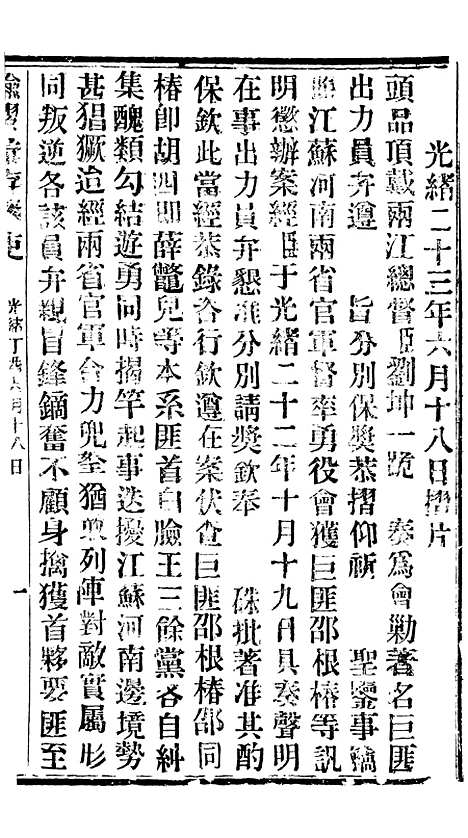 光緒二十三年六月十八日摺片
頭品頂戴兩江總督臣劉坤一跪　奏爲會勦著名巨匪
出力員弁遵　旨分別保獎恭摺仰祈　聖鑒事竊
江蘇河南兩省官軍督率勇役會獲巨匪邵根椿等訊
明懲辦案經臣于光緒二十二年十月十九日具奏聲明
在事出力員弁懇准分別請獎欽奉　硃批著准其酌
保欽此當經恭錄咨行欽遵在案伏查巨匪邵根椿邵同
椿卽胡四卽薛鼈兒等本系匪首白臉王三餘黨各自糾
集醜類勾結遊勇同時揭竿起事迭擾江蘇河南邊境勢
甚猖獗迨經兩省官軍合力兜拿猶敢列陣對敵實屬形
同叛逆各該員弁親冒鋒鏑奮不顧身擒獲首夥要匪至
諭摺彙存奏吏　光緒丁酉六月十八日　一